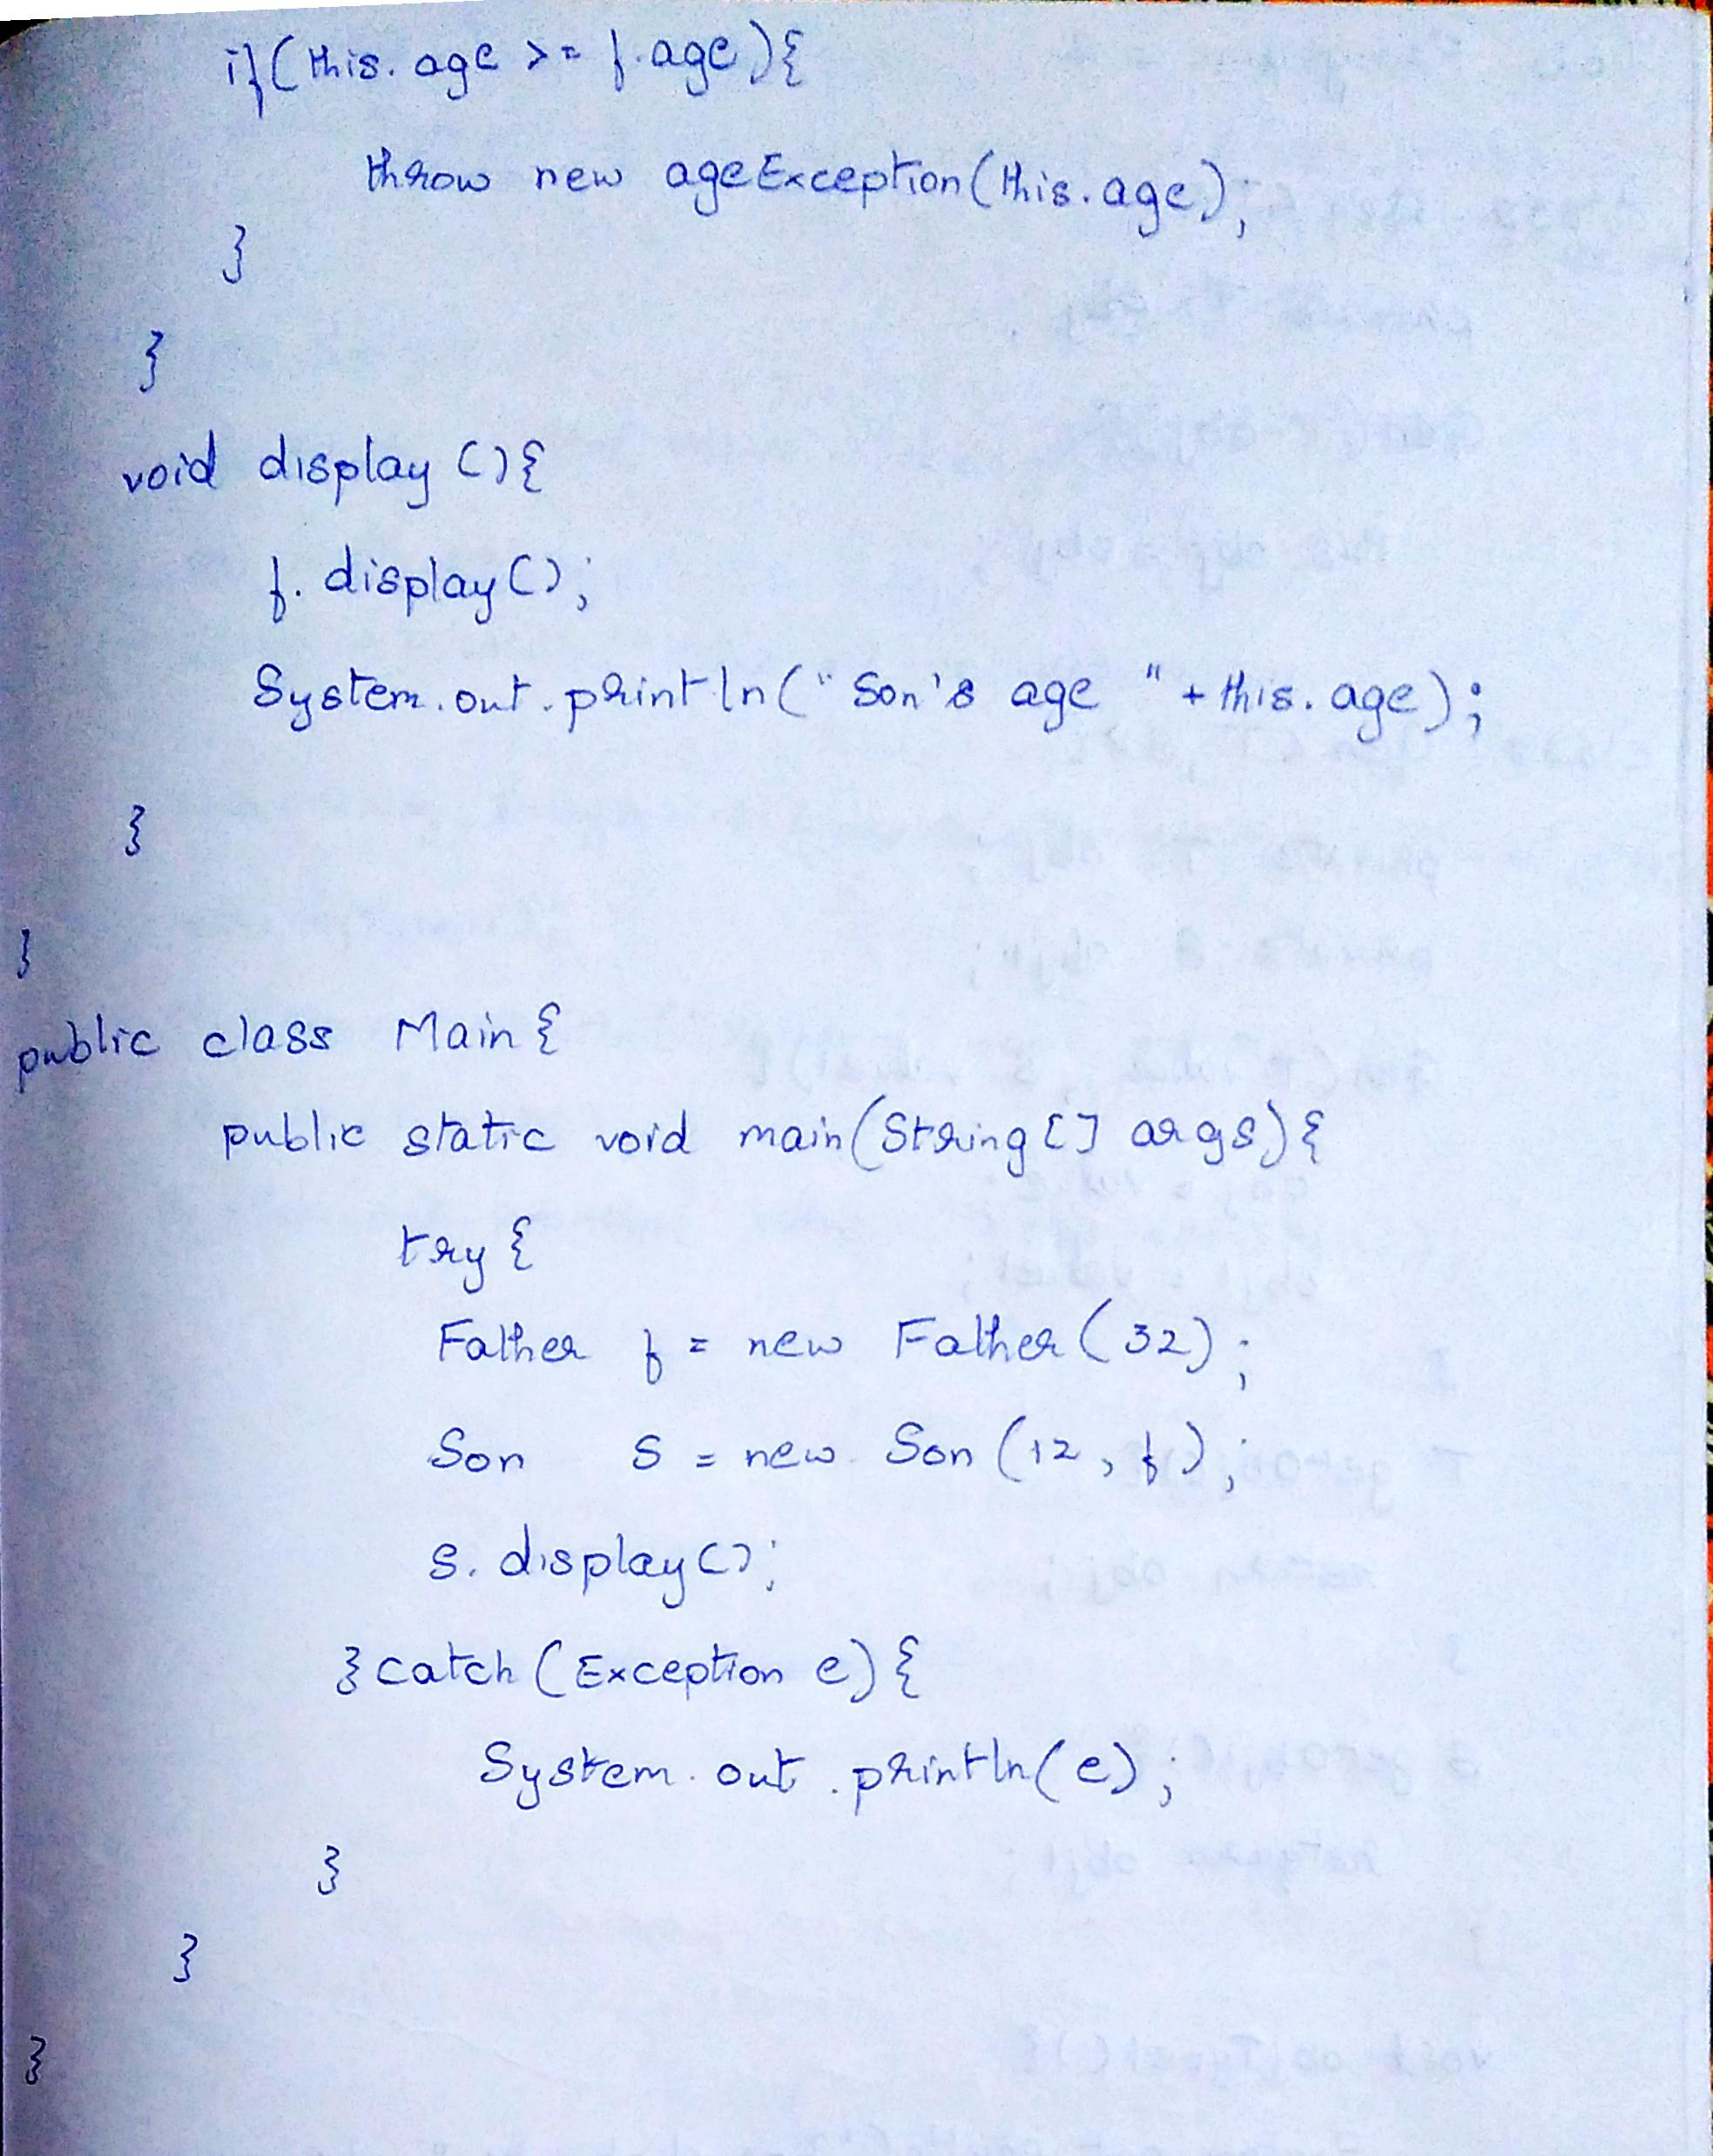 if(this.age >= f.age){
throw new ageException(this.age);
}
}
void display(){
f.display();
System.out.println("Son's age "+this.age);
}
}
public class Main{
public static void main(String[] args){
try{
Father f = new Father(32);
Son s = new Son(12, f);
s.display();
}catch(Exception e){
System.out.println(e);
}
}
}